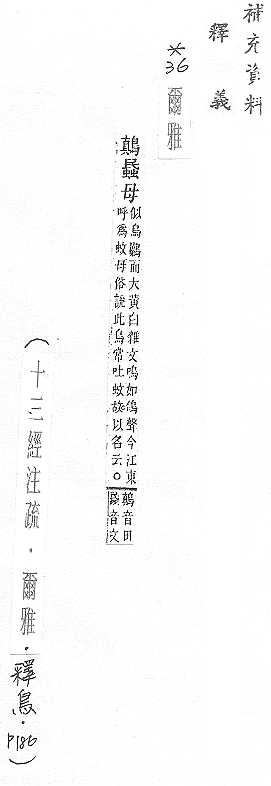 補充資料
釋義
*36 爾雅
鷏蟁母
似烏鷃而大黃白雜文鳴如鴿聲今江東
呼爲蚊母俗說此鳥常吐蚊故以名云。
鷏音田
蟁音文
(十三經注疏．爾雅．釋鳥．P186)